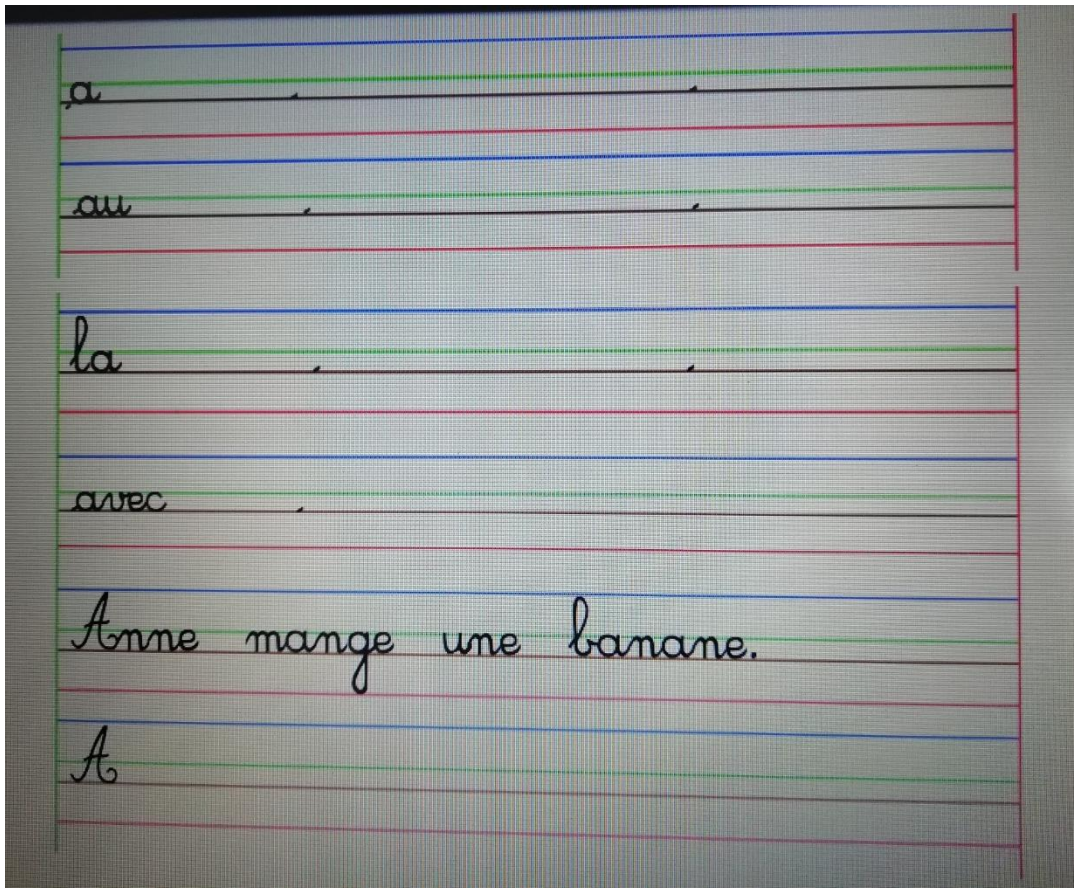 a
au
la
avec
Anne mange une banane.
A